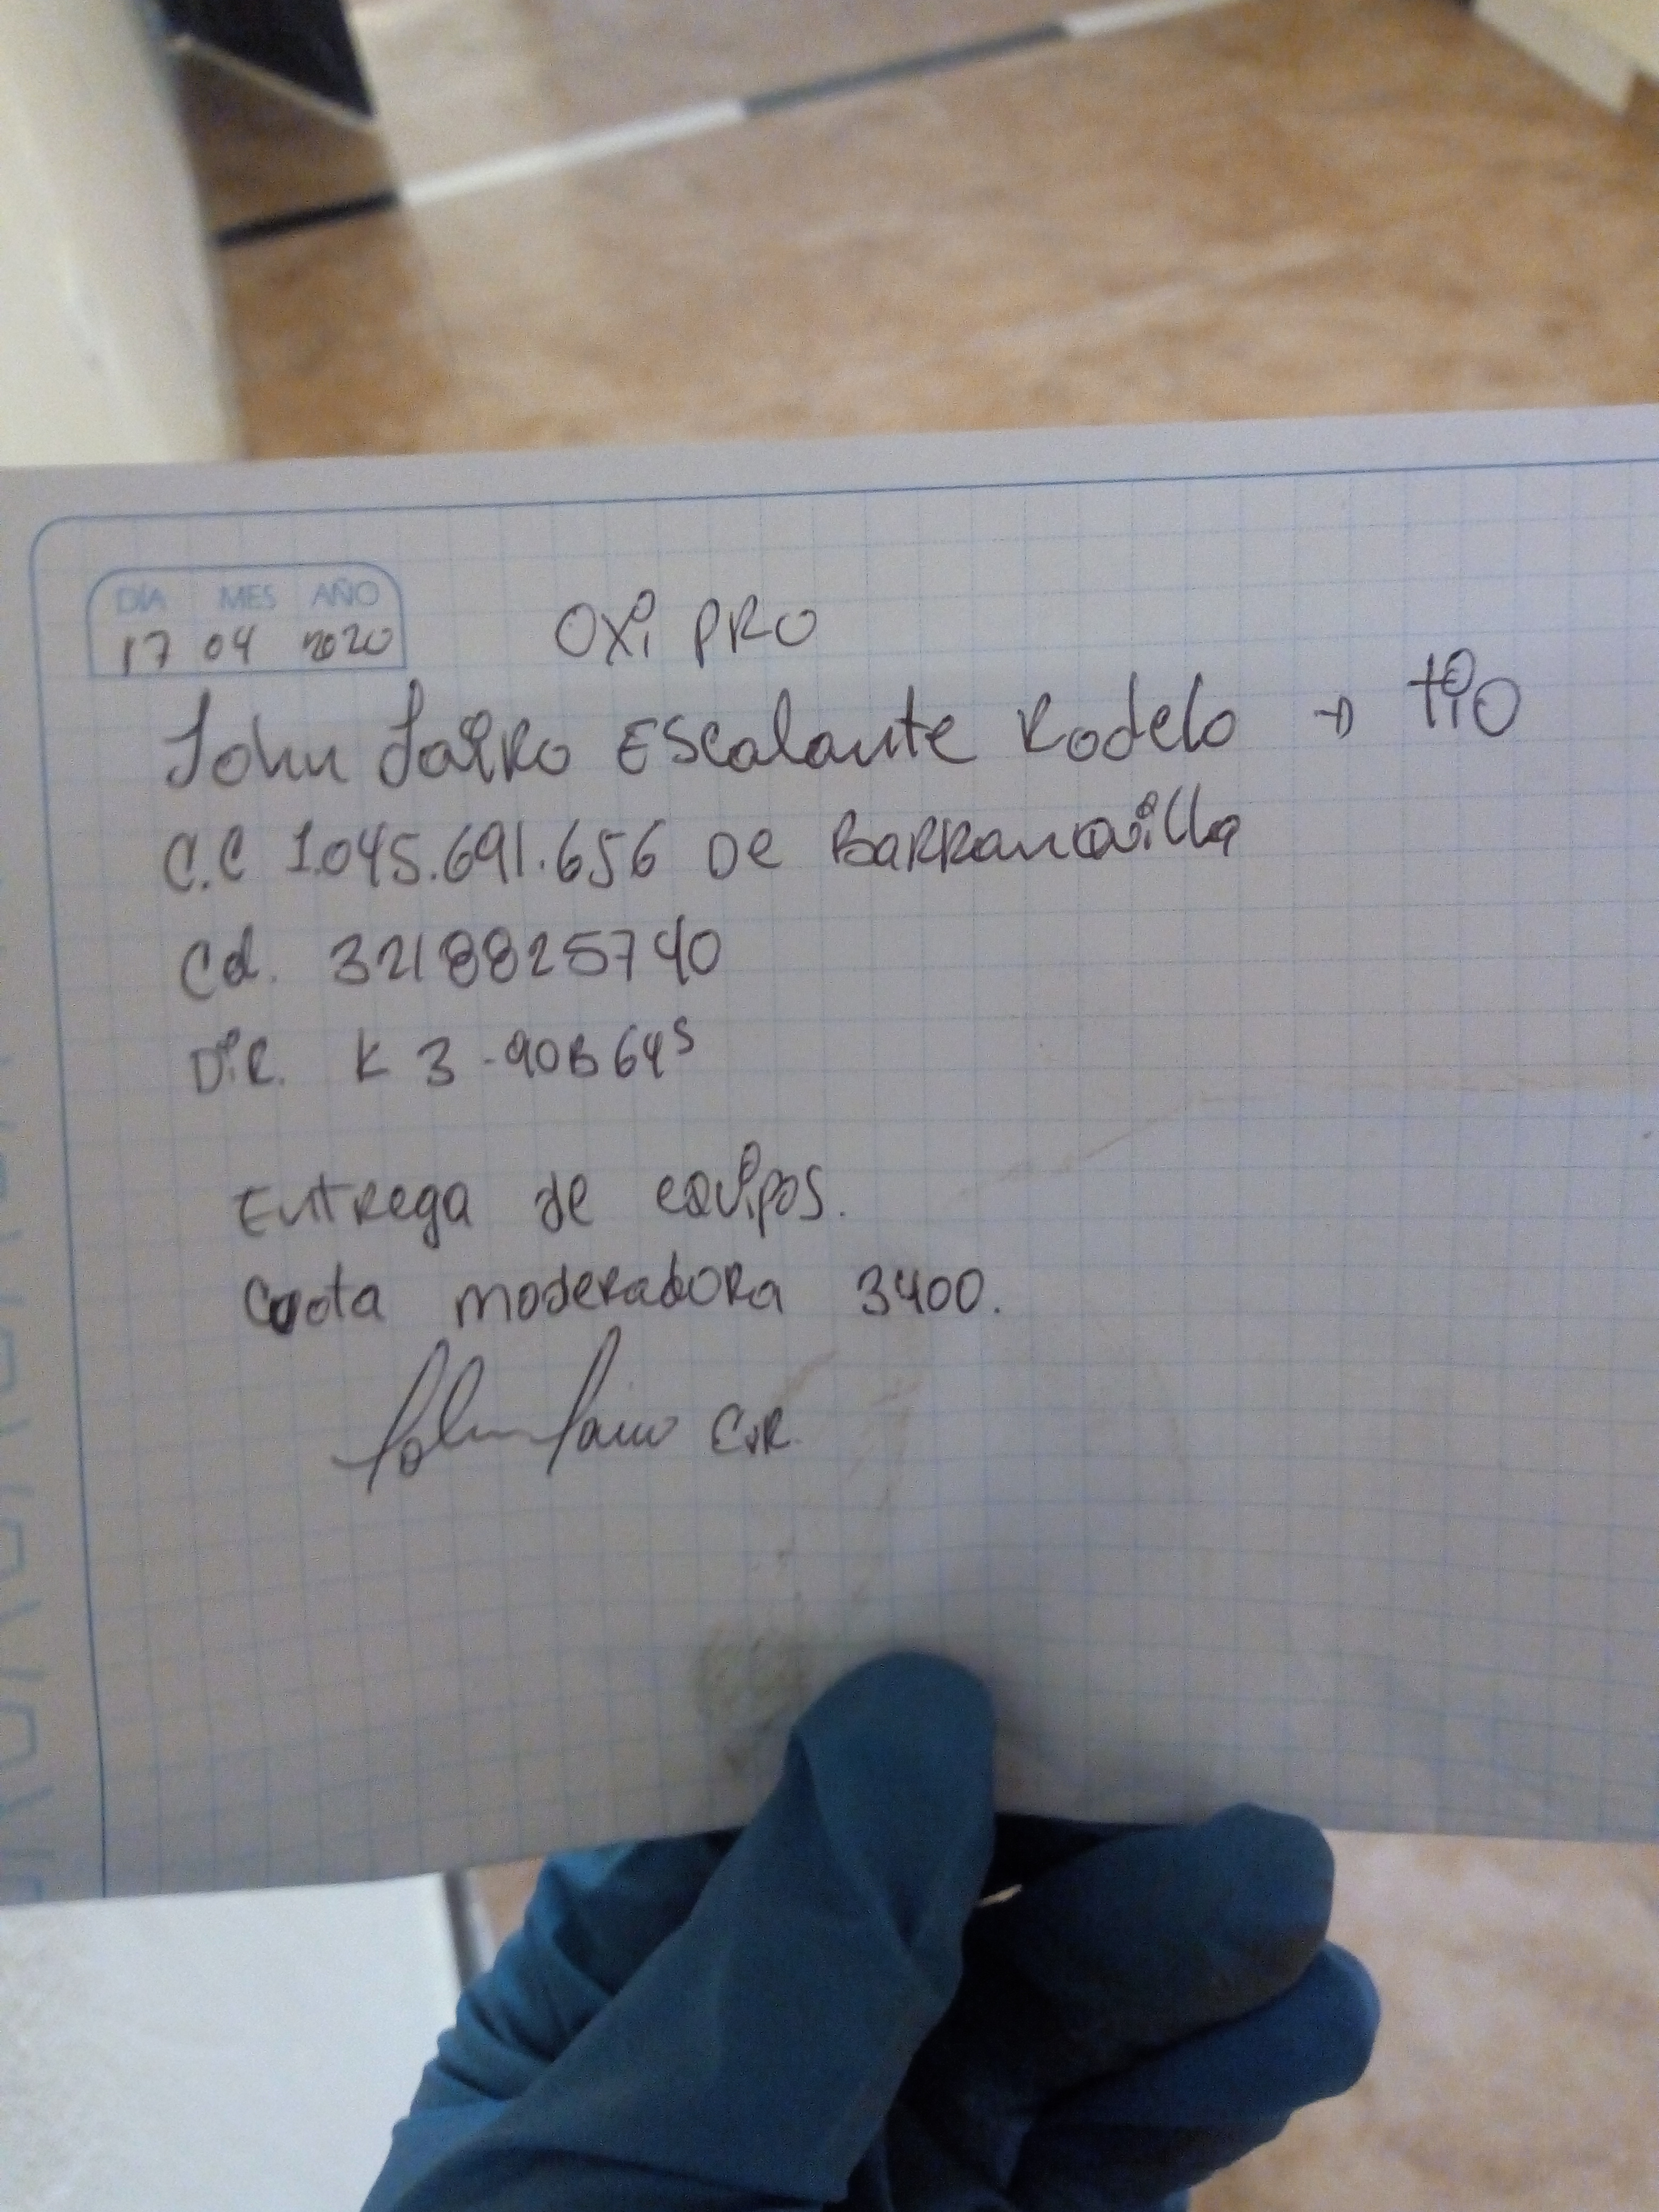 DÍA MES AÑO
17 04 2020
OXi PRO
John JaiRo Escalante Rodelo → tio
C.C 1.045.691.656 De BaRRanQuilla
Cel. 3218825740
DiR. K 3 -90B 64 S
EntRega de eQuipos.
Cuota modeRadoRa 3400.
John Jairo E.R.